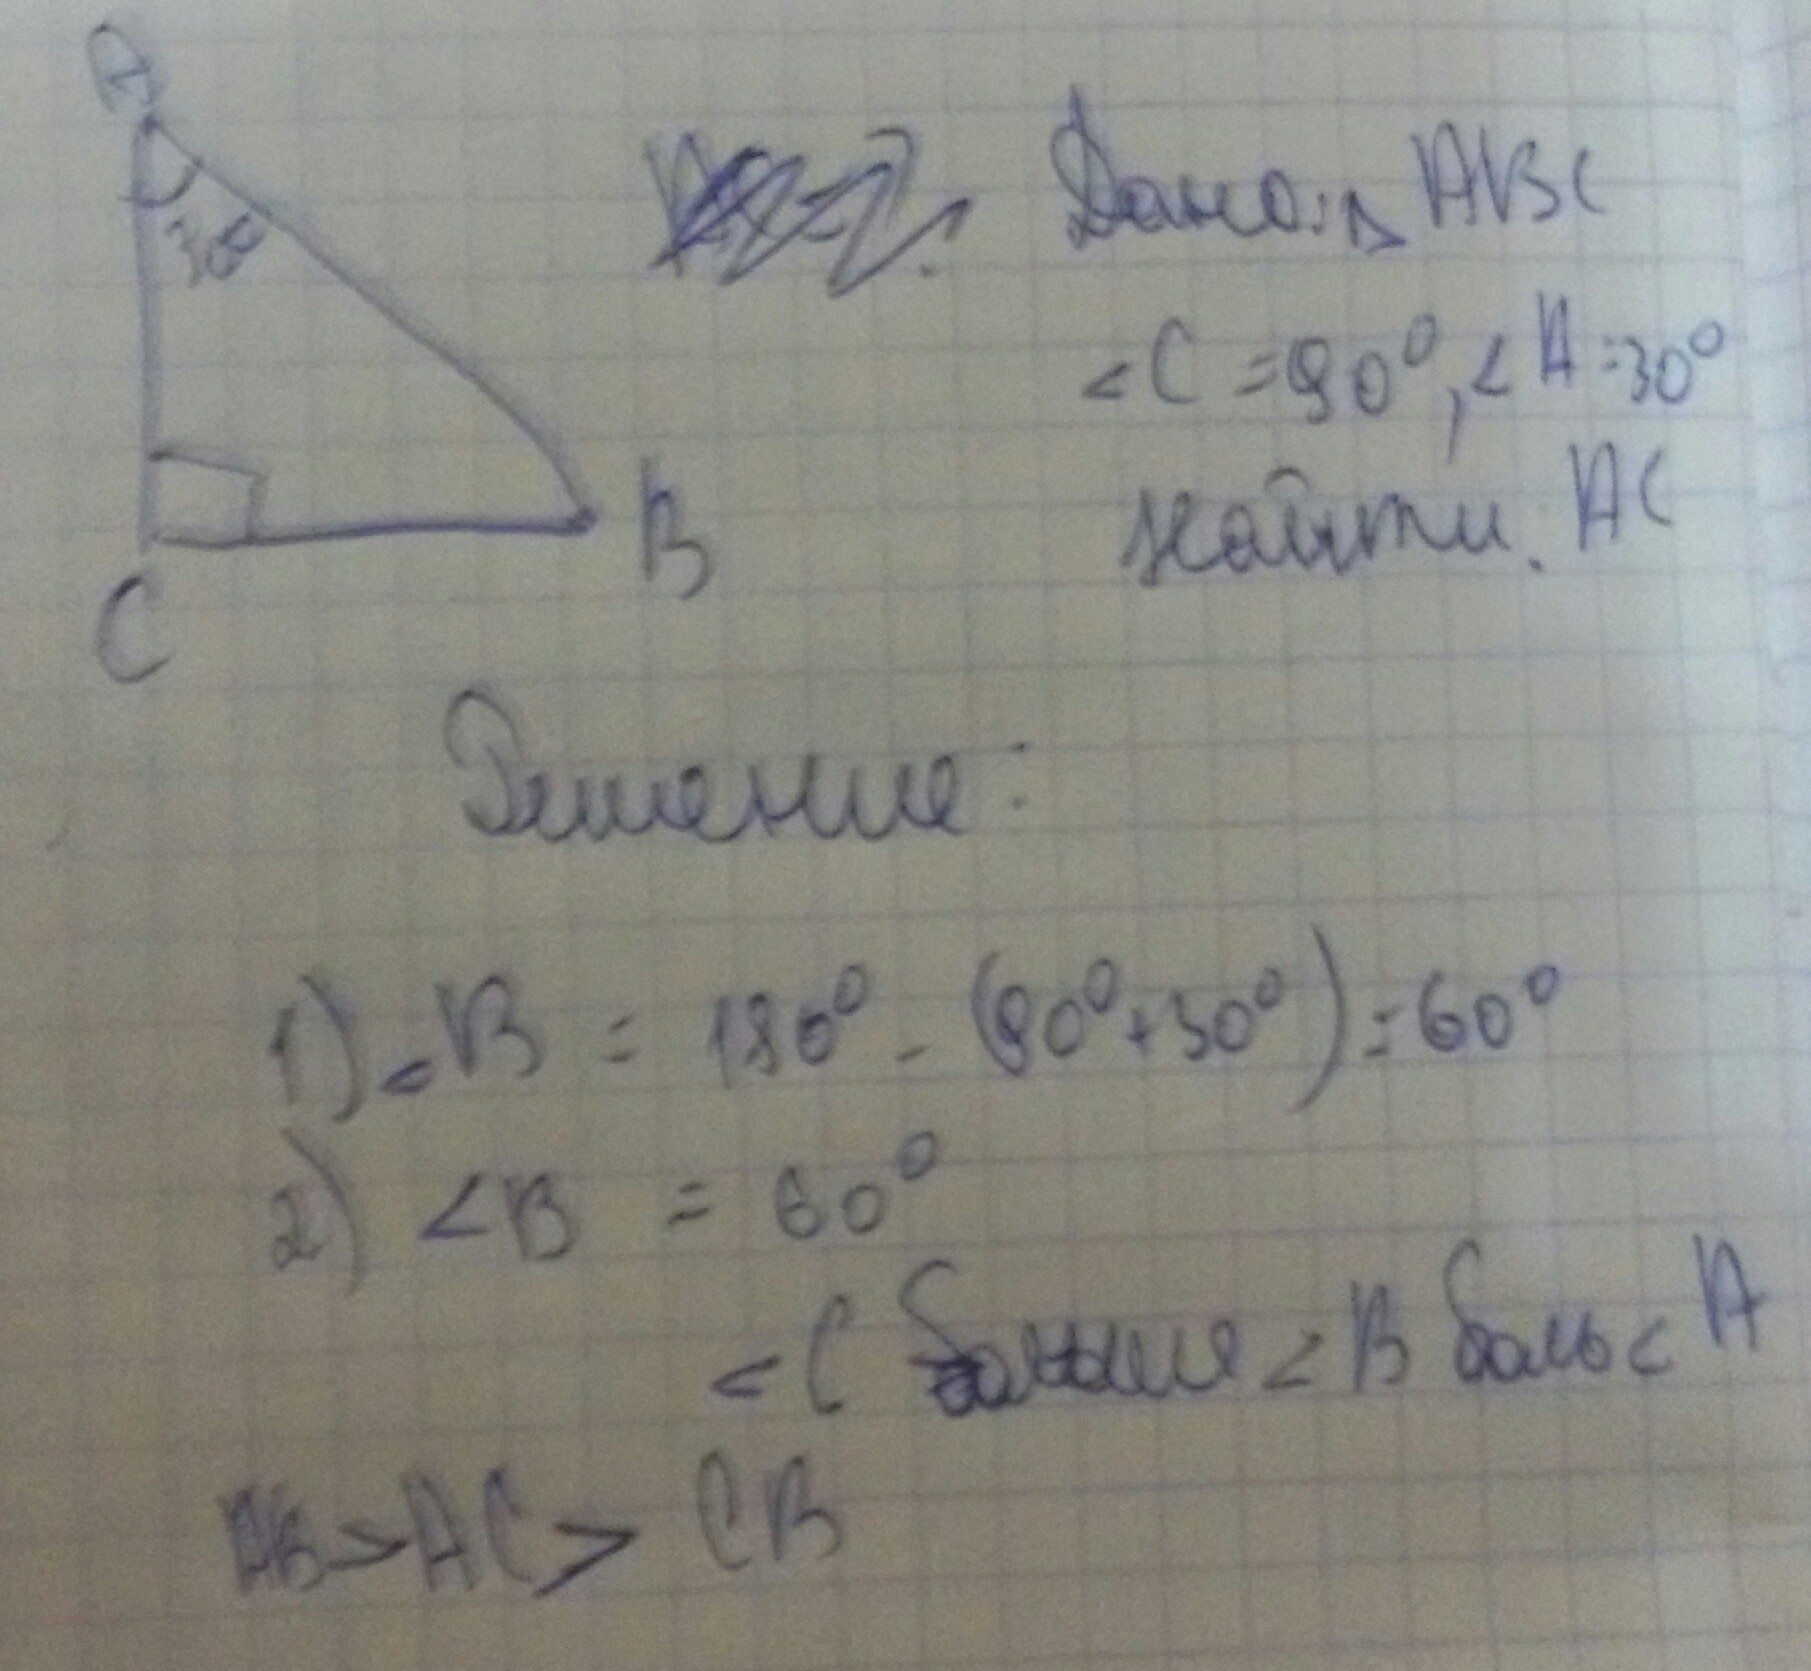 A
30°
C
B
Дано: △ ABC
<C = 90°, <A = 30°
Найти: AC
Решение:
1) <B = 180° - (90° + 30°) = 60°
2) <B = 60°
<C больше <B боль < A
AB > AC > CB